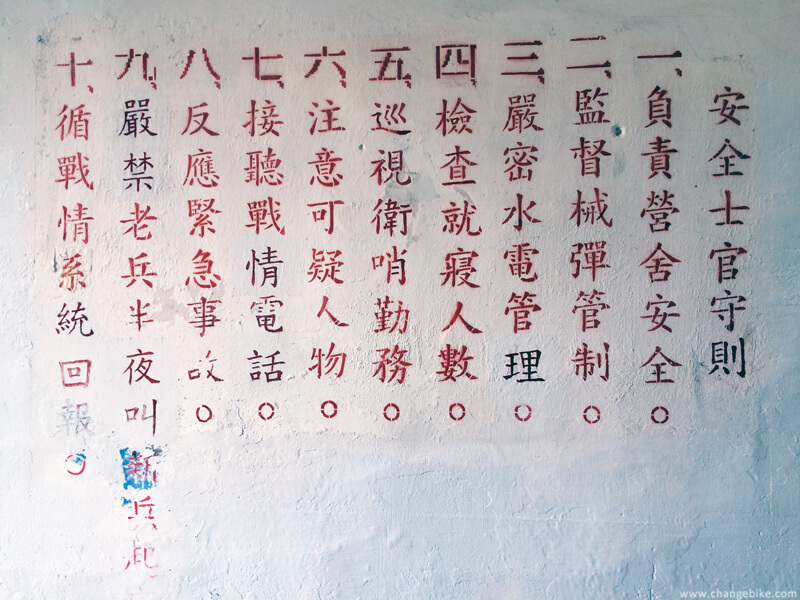 安全士官守則
一、負責營舍安全。
二、監督械彈管制。
三、嚴密水電管理
四、檢查就寢人數。
五、巡視衛哨勤務。
六、注意可疑人物。
七、接聽戰情電話。
八、反應緊急事故。
九、嚴禁老兵半夜叫新兵起
十、循戰情系統回報。
www.changebike.com